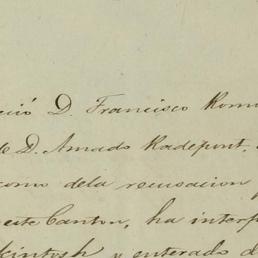 ció D. Francisco Rom
te D. Amado Radepont,
como dela recusacion
este Canton, ha interp
kintosh y enterado d